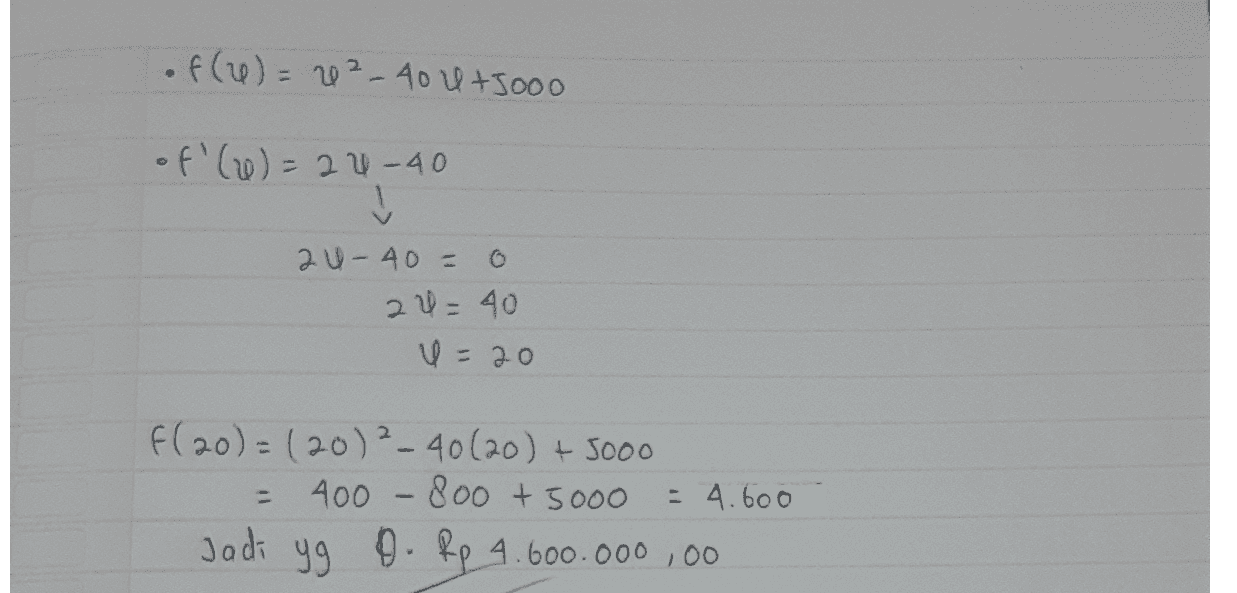 • f(x) = x² - 40x + 5000
• f'(x) = 2x - 40
↓
2x - 40 = 0
2x = 40
x = 20
f(20) = (20)² - 40(20) + 5000
= 400 - 800 + 5000 = 4.600
Jadi yg D. Rp 4.600.000,00